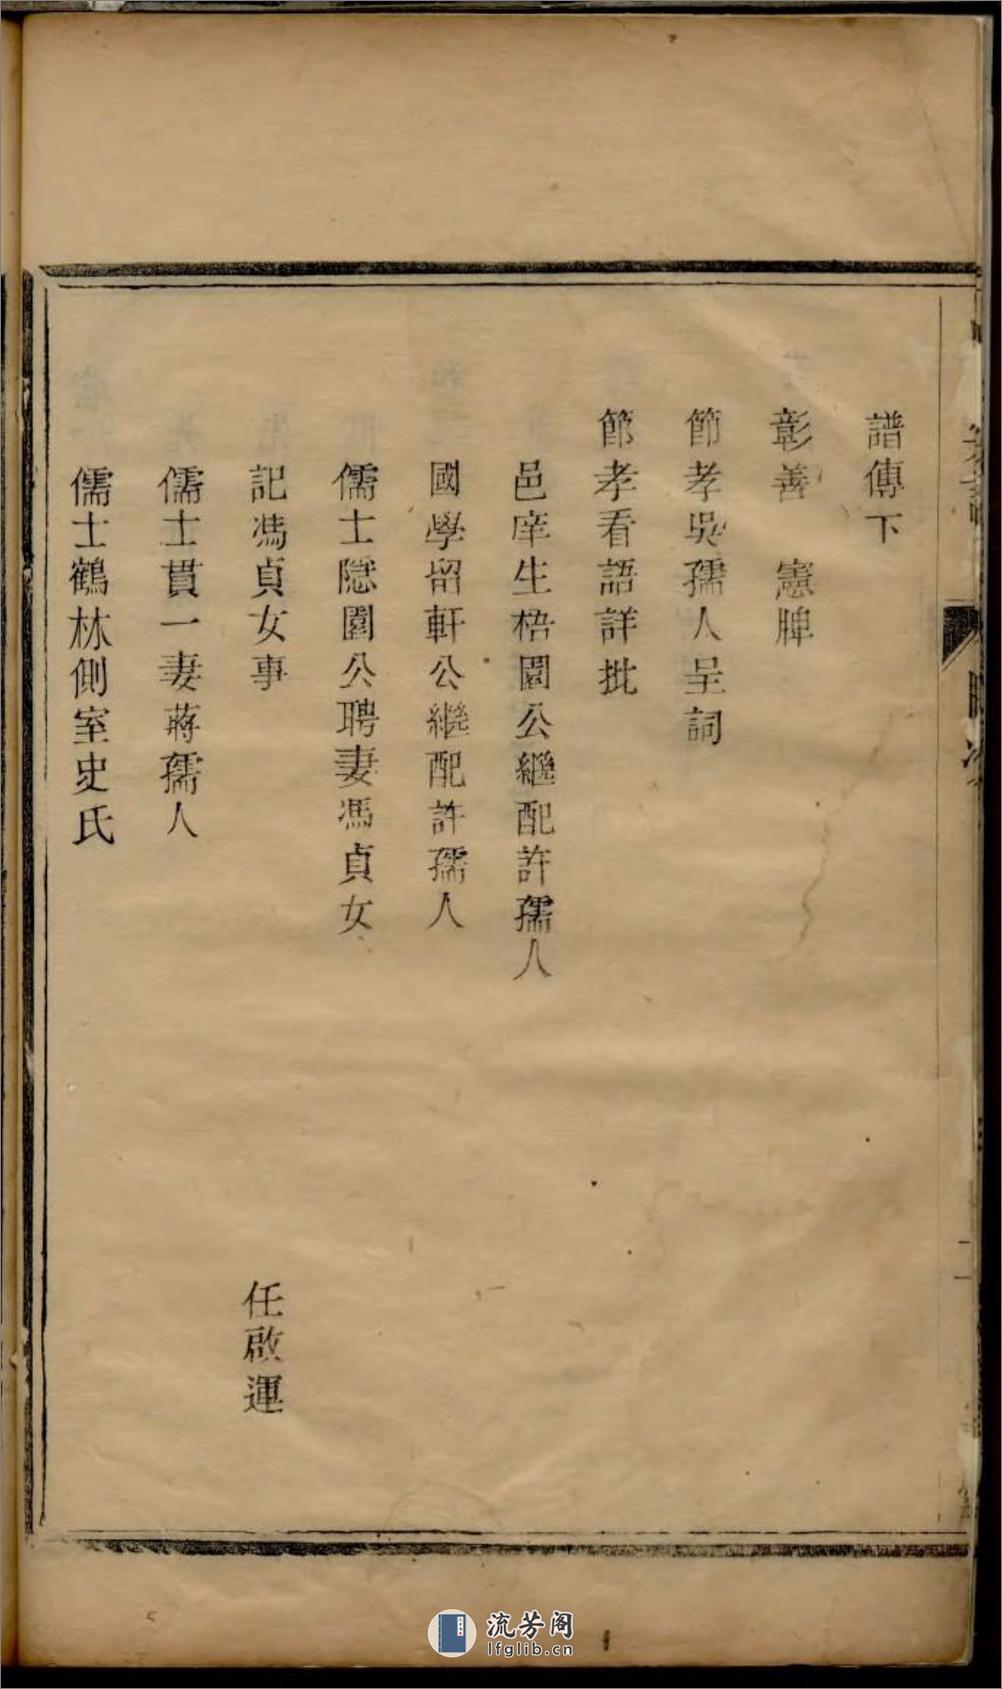 譜傳下
彰善　憲牌
節孝吳孺人呈詞
節孝看語詳批
邑庠生梧園公繼配許孺人
國學留軒公繼配許孺人
儒士隱園公聘妻馮貞女
記馮貞女事　任啟運
儒士貫一妻蔣孺人
儒士鶴林側室史氏
流芳阁
lfglib.cn